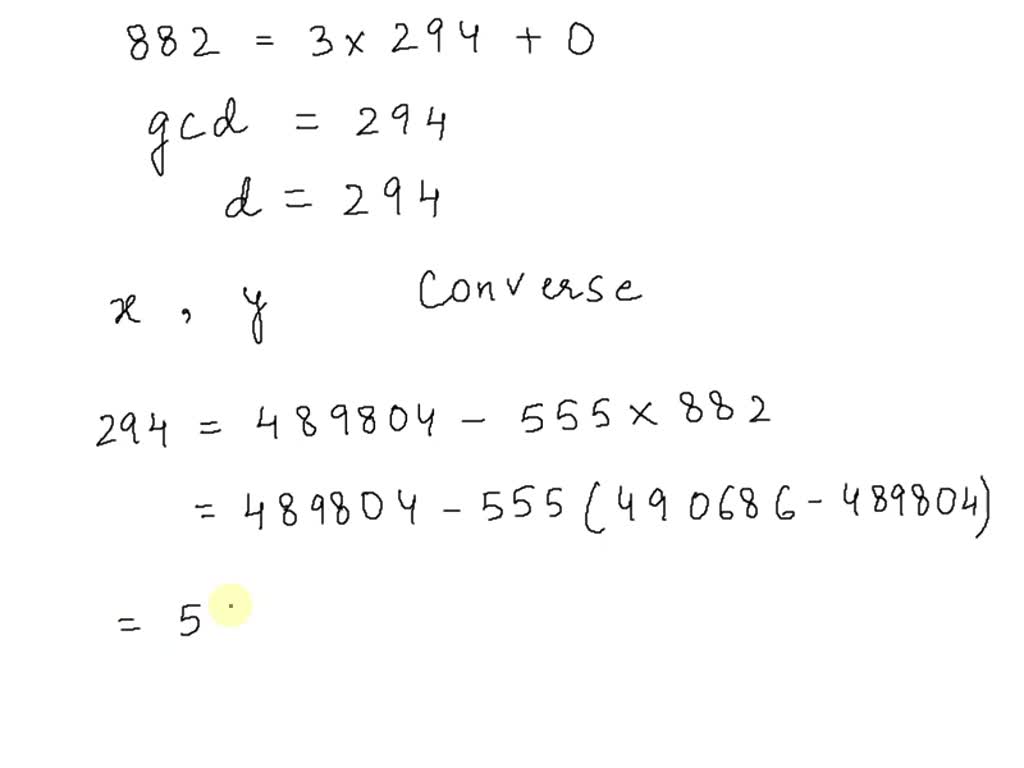 882 = 3 x 294 + 0
gcd = 294
d = 294
x , y Converse
294 = 489804 - 555 x 882
= 489804 - 555 (490686 - 489804)
= 5